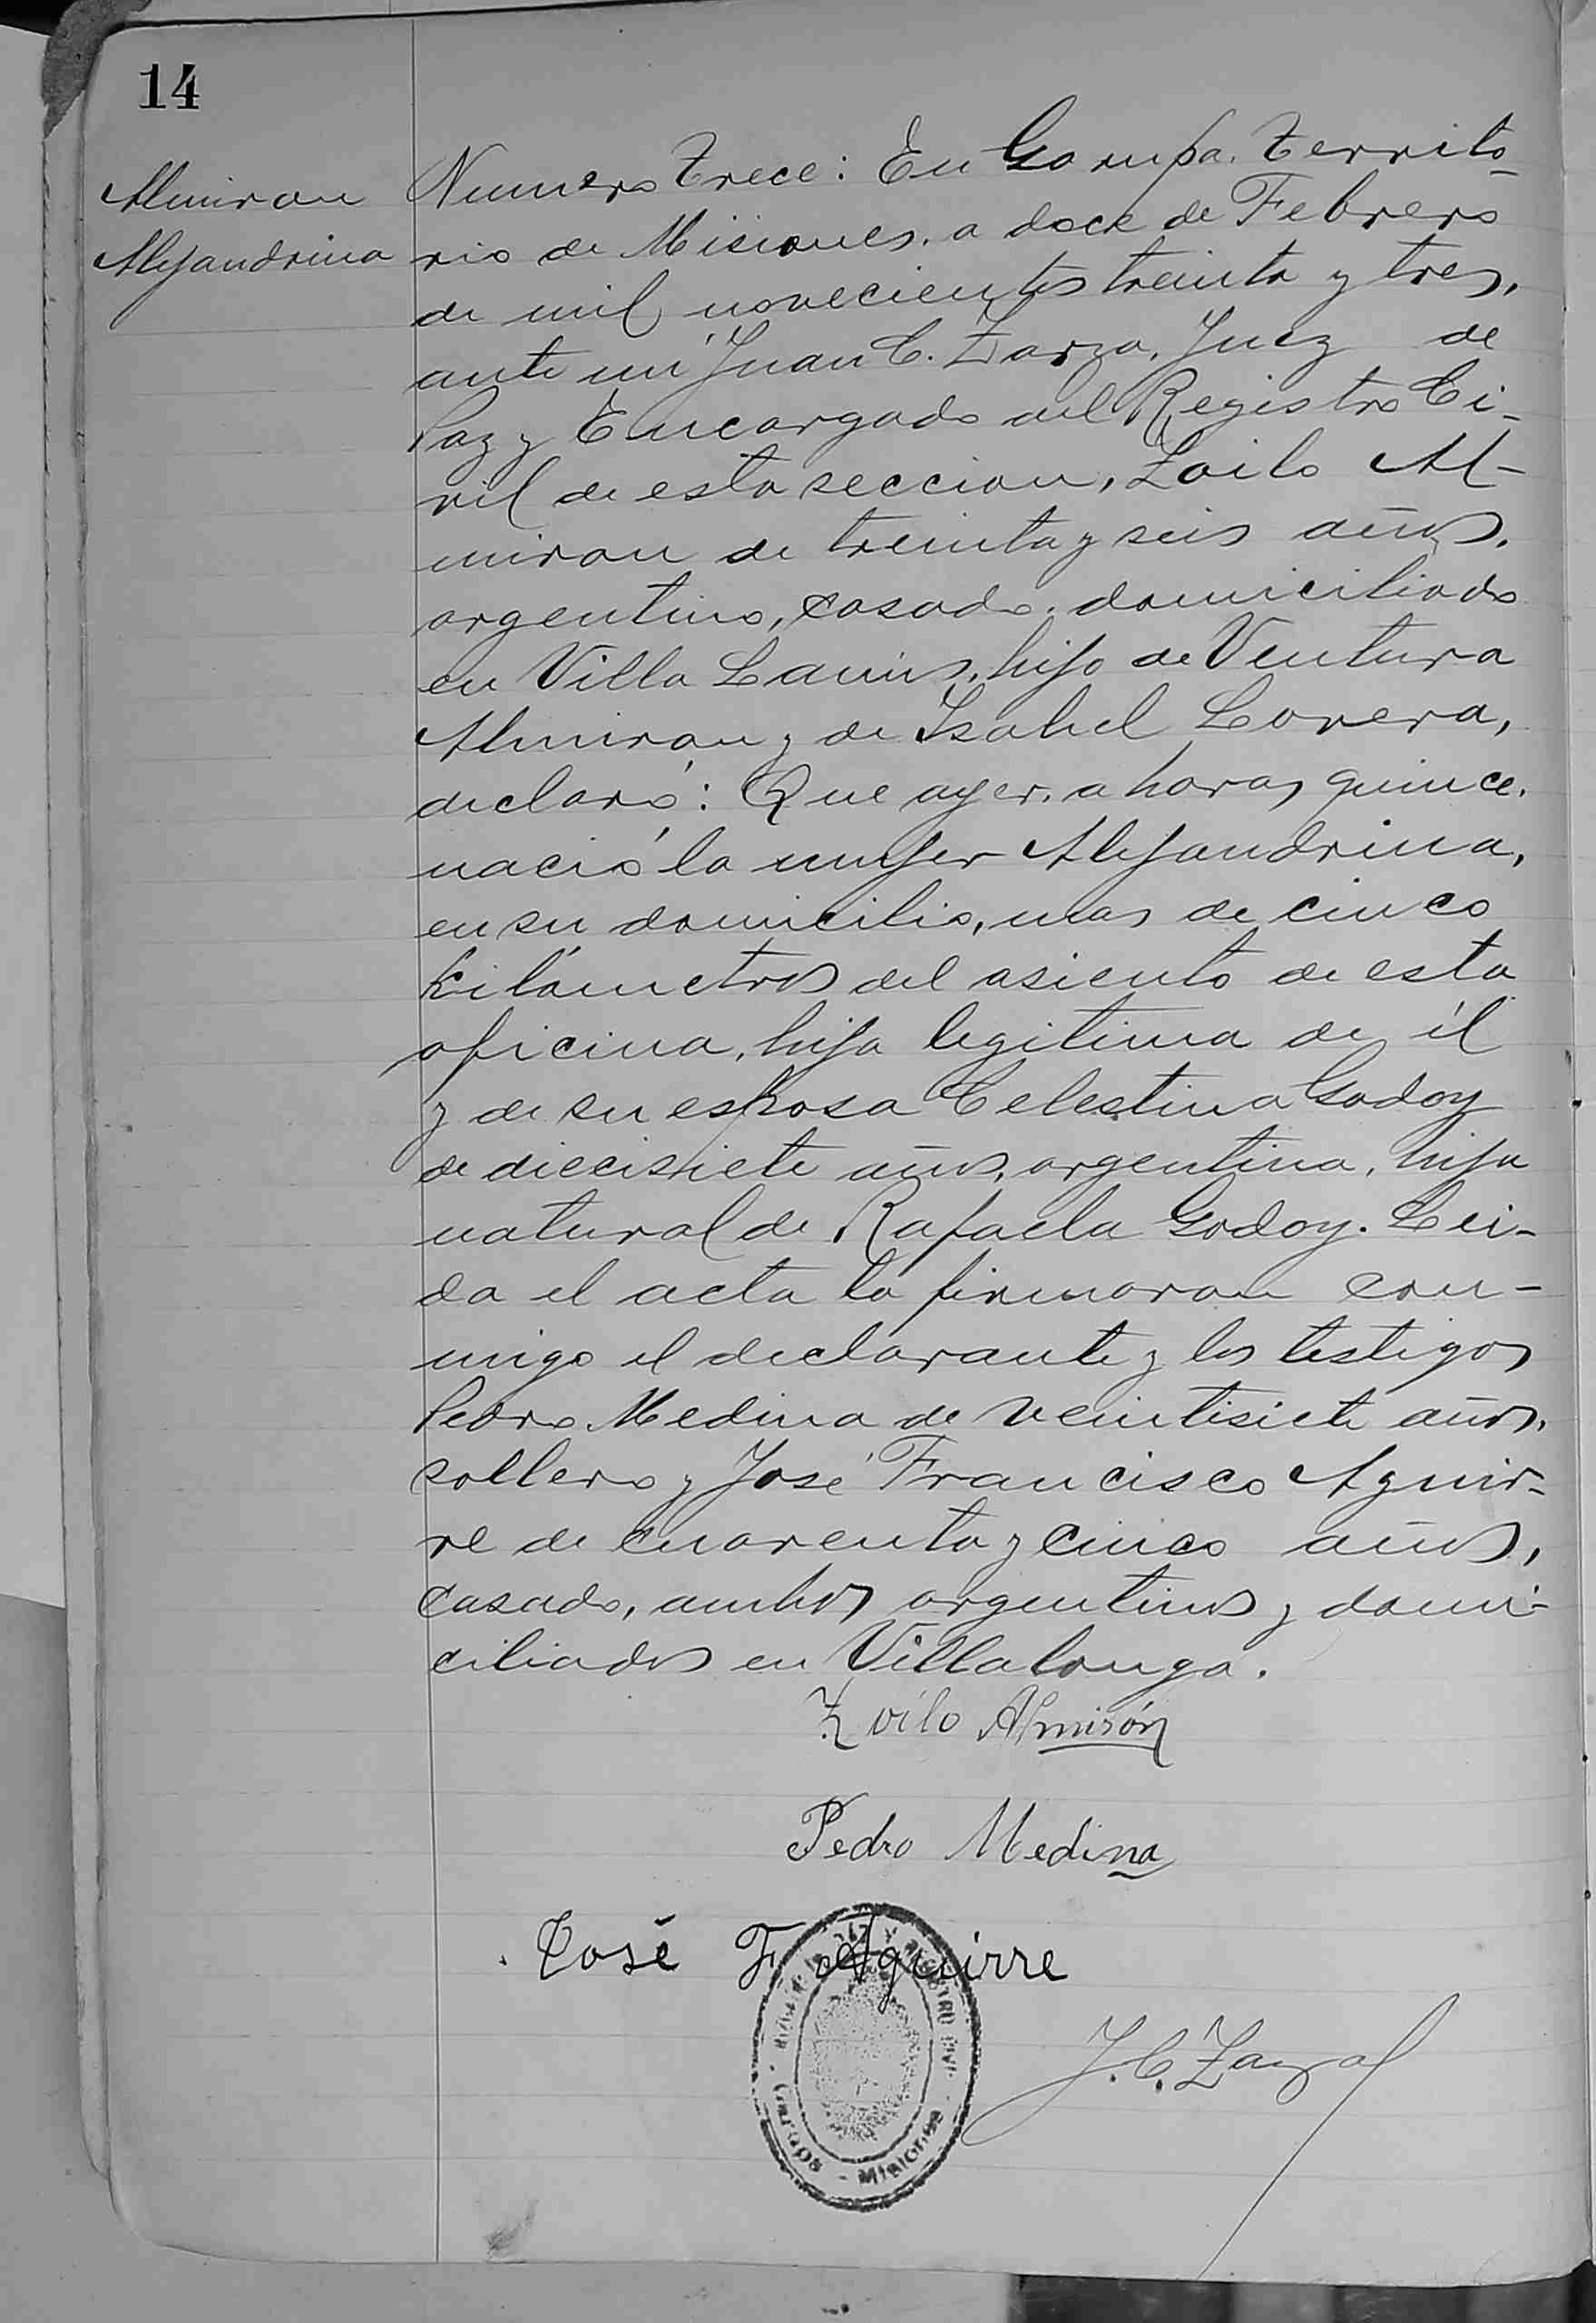 14
Almiron
Alejandrina
Numero Trece: En Garupa. Territo-
rio de Misiones. a doce de Febrero
de mil novecientos treinta y tres,
ante mi Juan C. Zarza, Juez de
Paz y Encargado del Registro Ci-
vil de esta seccion, Zoilo Al-
miron de treinta y seis años,
argentino, casado, domiciliado
en Villa Lanus, hijo de Ventura
Almiron y de Isabel Lovera,
declaró: Que ayer, a horas quince,
nació la mujer Alejandrina,
en su domicilio, mas de cinco
kilómetros del asiento de esta
oficina, hija legitima de él
y de su esposa Celestina Godoy
de diecisiete años, argentina, hija
natural de Rafaela Godoy. Lei-
da el acta la firmaron con-
migo el declarante y los testigos
Pedro Medina de veintisiete años,
soltero y José Francisco Aguir-
re de cuarenta y cinco años,
casado, ambos argentinos y domi-
ciliados en Villalonga.
Zoilo Almirón
Pedro Medina
José F. Aguirre
J. C. Zarza
PAZ Y REGISTRO CIVIL
Garupa - Misiones